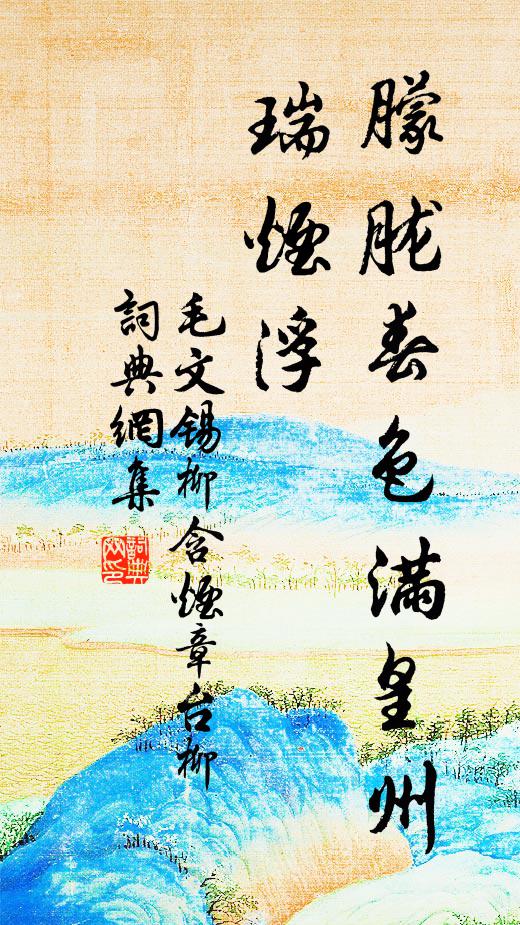 朦胧春色滿皇州
瑞煙浮
毛文锡柳含煙章台柳
詞典網集
詞典網印